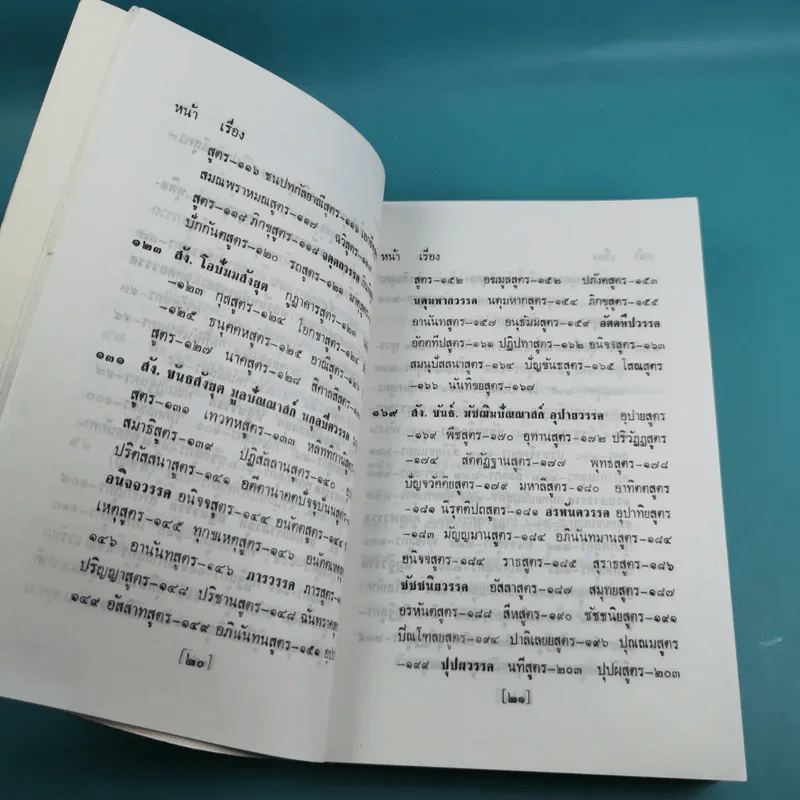 หน้า เรื่อง
สูตร–๑๑๖ ชนปทกัลยาณีสูตร–๑๑๖
สมณพราหมณสูตร–๑๑๗ ฉวิสูตร–
สูตร–๑๑๘ ภิกขุสูตร–๑๑๘ จตุตถวรรค
ปักกันตสูตร–๑๒๐ รถสูตร–๑๒๑
๑๒๓ สัง. โอปัมมสังยุต กูฏาคารสูตร–๑๒๓
–๑๒๓ กุลสูตร–๑๒๔ โอกขาสูตร–๑๒๔
–๑๒๕ ธนุคคหสูตร–๑๒๕ อาณีสูตร–
สูตร–๑๒๗ นาคสูตร–๑๒๘
๑๓๑ สัง. ขันธสังยุต มูลปัณณาสก์ นกุลปิตวรรค
สูตร–๑๓๑ เทวทหสูตร–๑๓๓ หลิททิกานิสูตร
สมาธิสูตร–๑๓๙ ปฏิสัลลานสูตร–๑๔๐
ปริตัสสนาสูตร–๑๔๑ อตีตานาคตปัจจุบันนสูตร–
อนิจจวรรค อนิจจสูตร–๑๔๔ อนัตตสูตร–๑๔๔
เหตุสูตร–๑๔๕ ทุกขเหตุสูตร–๑๔๖ อนัตตเหตุสูตร
๑๔๖ อานันทสูตร–๑๔๖ ภารวรรค ภารสูตร–
ปริญญาสูตร–๑๔๘ ปริชานสูตร–๑๔๘ ฉันทราคสูตร
๑๔๙ อัสสาทสูตร–๑๔๙ อภินันทนสูตร–๑๕๑
[๒๐]
หน้า เรื่อง
สูตร–๑๕๒ อฆมูลสูตร–๑๕๒ ปภังคุสูตร–๑๕๓
นตุมหากวรรค นตุมหากสูตร–๑๕๔ ภิกขุสูตร–๑๕๕
อานันทสูตร–๑๕๗ อนุธัมมสูตร–๑๕๙ อัตตทีปวรรค
อัตตทีปสูตร–๑๖๑ ปฏิปทาสูตร–๑๖๒ อนิจจสูตร–๑๖๓
สมนุปัสสนาสูตร–๑๖๔ ปัญจขันธสูตร–๑๖๕ โสณสูตร
–๑๖๖ นันทิขยสูตร–๑๖๗
๑๖๙ สัง. ขันธ์. มัชฌิมปัณณาสก์ อุปายวรรค อุปายสูตร
–๑๖๙ พีชสูตร–๑๗๐ อุทานสูตร–๑๗๒ ปริวัฏฏสูตร
–๑๗๔ สัตตัฏฐานสูตร–๑๗๗ พุทธสูตร–๑๗๘
ปัญจวัคคิยสูตร–๑๗๙ มหาลิสูตร–๑๘๐ อาทิตตสูตร
–๑๘๑ นิรุตติปถสูตร–๑๘๑ อรหันตวรรค อุปาทิยสูตร
–๑๘๓ มัญญมานสูตร–๑๘๔ อภินันทมานสูตร–๑๘๔
อนิจจสูตร–๑๘๔ ราธสูตร–๑๘๕ สุราธสูตร–๑๘๖
ขัชชนิยวรรค อัสสาสูตร–๑๘๗ สมุทยสูตร–๑๘๗
อรหันตสูตร–๑๘๘ สีหสูตร–๑๙๐ ขัชชนิยสูตร–๑๙๑
ปิณโฑลยสูตร–๑๙๔ ปาลิเลยยสูตร–๑๙๖ ปุณณมสูตร
–๑๙๙ ปุปผวรรค นทีสูตร–๒๐๓ ปุปผสูตร–๒๐๓
[๒๑]